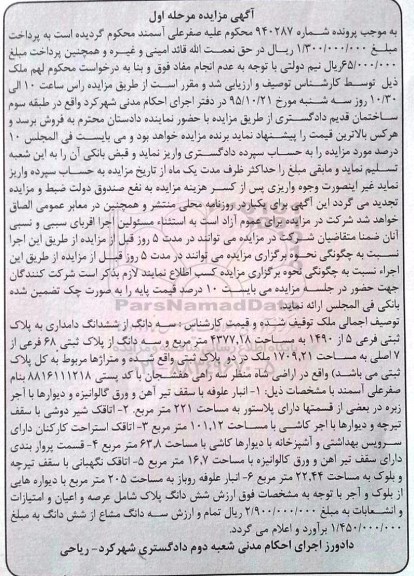 آگهی مزایده مرحله اول
به موجب پرونده شماره ۹۴۰۲۸۷ محکوم علیه صفرعلی آسمند محکوم گردیده است به پرداخت
مبلغ ۱/۳۰۰/۰۰۰/۰۰۰ ریال در حق نعمت الله قائد امینی و غیره و همچنین پرداخت مبلغ
۶۵/۰۰۰/۰۰۰ریال نیم دولتی با توجه به عدم انجام مفاد فوق و بنا به درخواست محکوم لهم ملک
ذیل توسط کارشناس توصیف و ارزیابی شد و مقرر است از طریق مزایده راس ساعت ۱۰ الی
۱۰/۳۰ روز سه شنبه مورخ ۹۵/۱۰/۲۱ در دفتر اجرای احکام مدنی شهرکرد واقع در طبقه سوم
ساختمان قدیم دادگستری از طریق مزایده با حضور نماینده دادستان محترم به فروش برسد و
هرکس بالاترین قیمت را پیشنهاد نماید برنده مزایده خواهد بود و می بایست فی المجلس ۱۰
درصد مورد مزایده را به حساب سپرده دادگستری واریز نماید و قبض بانکی آن را به این شعبه
تسلیم نماید و مابقی مبلغ را حداکثر ظرف مدت یک ماه از تاریخ مزایده به حساب سپرده واریز
نماید غیر اینصورت وجوه واریزی پس از کسر هزینه مزایده به نفع صندوق دولت ضبط و مزایده
تجدید می گردد این آگهی برای یکبار در روزنامه محلی منتشر و همچنین در معابر عمومی الصاق
خواهد شد شرکت در مزایده برای عموم آزاد است به استثناء مسئولین اجرا اقربای سببی و نسبی
آنان ضمنا متقاضیان شرکت در مزایده می توانند در مدت ۵ روز قبل از مزایده از طریق این اجرا
نسبت به چگونگی نحوه برگزاری مزایده می توانند در مدت ۵ روز قبل از مزایده از طریق این
اجراء نسبت به چگونگی نحوه برگزاری مزایده کسب اطلاع نمایند لازم بذکر است شرکت کنندگان
جهت حضور در جلسه مزایده می بایست ۱۰ درصد قیمت پایه را به صورت چک تضمین شده
بانکی فی المجلس ارائه نمایند.
توصیف اجمالی ملک توقیف شده و قیمت کارشناس: سه دانگ از ششدانگ دامداری به پلاک
ثبتی فرعی ۵ از ۱۴۹۰ به مساحت ۴۳۷۷,۱۸ متر مربع و سه دانگ از پلاک ثبتی ۶۸ فرعی از
۷ اصلی به مساحت ۱۷۰۹,۲۱ ملک در دو پلاک ثبتی واقع شده و متراژها مربوط به کل پلاک
ثبتی می باشد) واقع در اراضی شاه منظر سه راهی هفشجان با کد پستی ۸۸۱۶۱۱۱۲۱۸ بنام
صفرعلی آسمند با مشخصات ذیل: ۱- انبار علوفه با سقف تیر آهن و ورق گالوانیزه و دیوارها با آجر
زبره در بعضی از قسمتها دارای پلاستور به مساحت ۲۲۱ متر مربع. ۲- اتاقک شیر دوشی با سقف
تیرچه و دیوارها با آجر کاشی با مساحت ۱۰۱,۱۲ متر مربع ۳- اتاقک استراحت کارکنان دارای
سرویس بهداشتی و آشپزخانه با دیوارها کاشی با مساحت ۶۳,۸ متر مربع ۴- قسمت پروار بندی
دارای سقف تیر آهن و ورق کالوانیزه با مساحت ۱۶,۷ متر مربع ۵- اتاقک نگهبانی با سقف تیرچه
و بلوک به مساحت ۲۲,۴۴ متر مربع ۶- انبار علوفه روباز به مساحت ۲۰۵ متر مربع با دیواره هایی
از بلوک و آجر با توجه به مشخصات فوق ارزش شش دانگ پلاک شامل عرصه و اعیان و امتیازات
و انشعابات به مبلغ ۲/۹۰۰/۰۰۰/۰۰۰ ریال تمام و ارزش سه دانگ مشاع از شش دانگ به مبلغ
۱/۴۵۰/۰۰۰/۰۰۰ برآورد و اعلام می گردد.
دادورز اجرای احکام مدنی شعبه دوم دادگستری شهرکرد- ریاحی